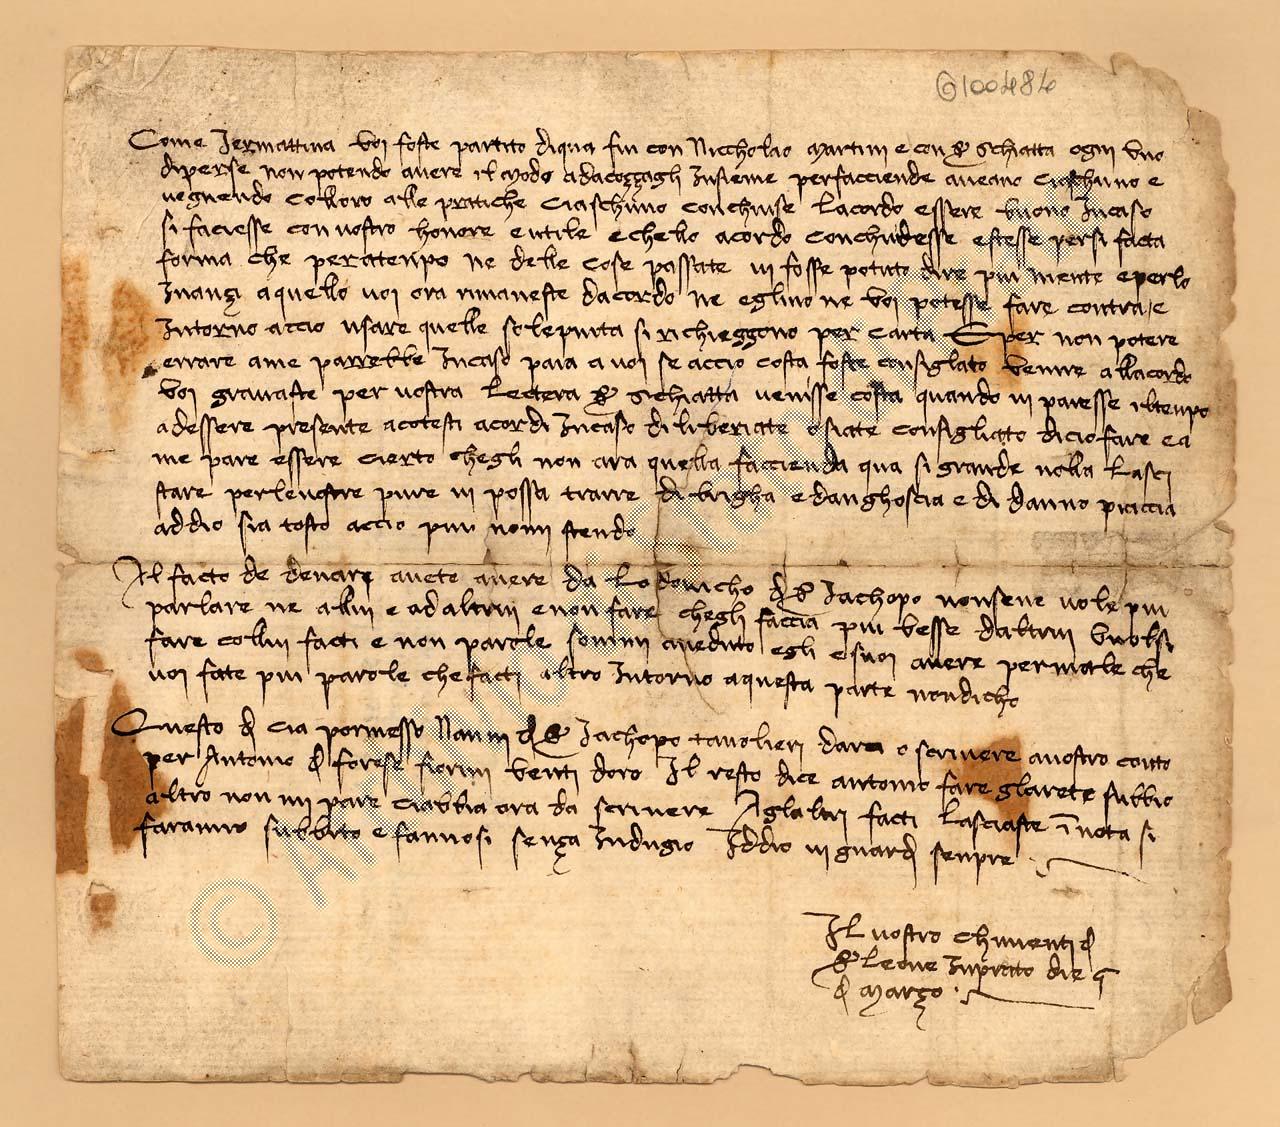 G100484
Come Jermattina voi foste partito diqua fui con Niccholao Martini e con Ser Schiatta ogni uno
diperse non potendo avere il modo adacozzagli Insieme perfacciende aveano Ciaschuno e
vegnendo Colloro alle pratiche Ciaschuno Conchiuse Lacordo essere buono Incaso
si faciesse con vostro honore e utile e chello acordo Conchiudesse e stesse persi facta
forma che per atenpo ne delle Cose passate vi fosse potuto dire piu niente e perlo
Inanzi a quello voi ora rimaneste dacordo ne eglino ne Voi potesse fare contra e
Intorno accio usare quelle si richieggono per Carta E per non potere
errare a me parrebbe Incaso paia a voi se accio costa foste consiglato Venire allacordo
Voi gravaste per vostra Lectera Ser Schiatta venisse costa quando vi paresse il tenpo
adessere presente acotesti acordi Incaso diliberiate o siate consigliato dicio fare e a
me pare essere Cierto chegli non ara quella faccienda qua si grande nolla Lasci
stare perlevostre pure vi possa trarre di brigha e danghoscia e di danno piaccia
addio sia tosto accio piu nomi stendo
Il facto de denari avete avere da Lodovicho di Ser Jachopo nonsene vole piu
parlare ne allui e ad altrui e non fare chegli faccia piu besse daltrui Vuolsi
fare collui facti e non parole sommi aveduto egli e suoi avere permale che
voi fate piu parole che facti altro Intorno a questa parte nondicho
Questo di Cia pormesso Nanni di Ser Jachopo tavolieri dare o scrivere avostro conto
per Antonio di Forese fiorini venti doro Il resto dice antonio fare glarete subbio
altro non mi pare Ciabbia ora da scrivere Aglaltri facti Lasciaste in nota si
faranno subbito e fannosi senza Indugio Iddio vi guardi senpre
Il vostro Chimenti di
Ser Leone Inprato die
di Marzo